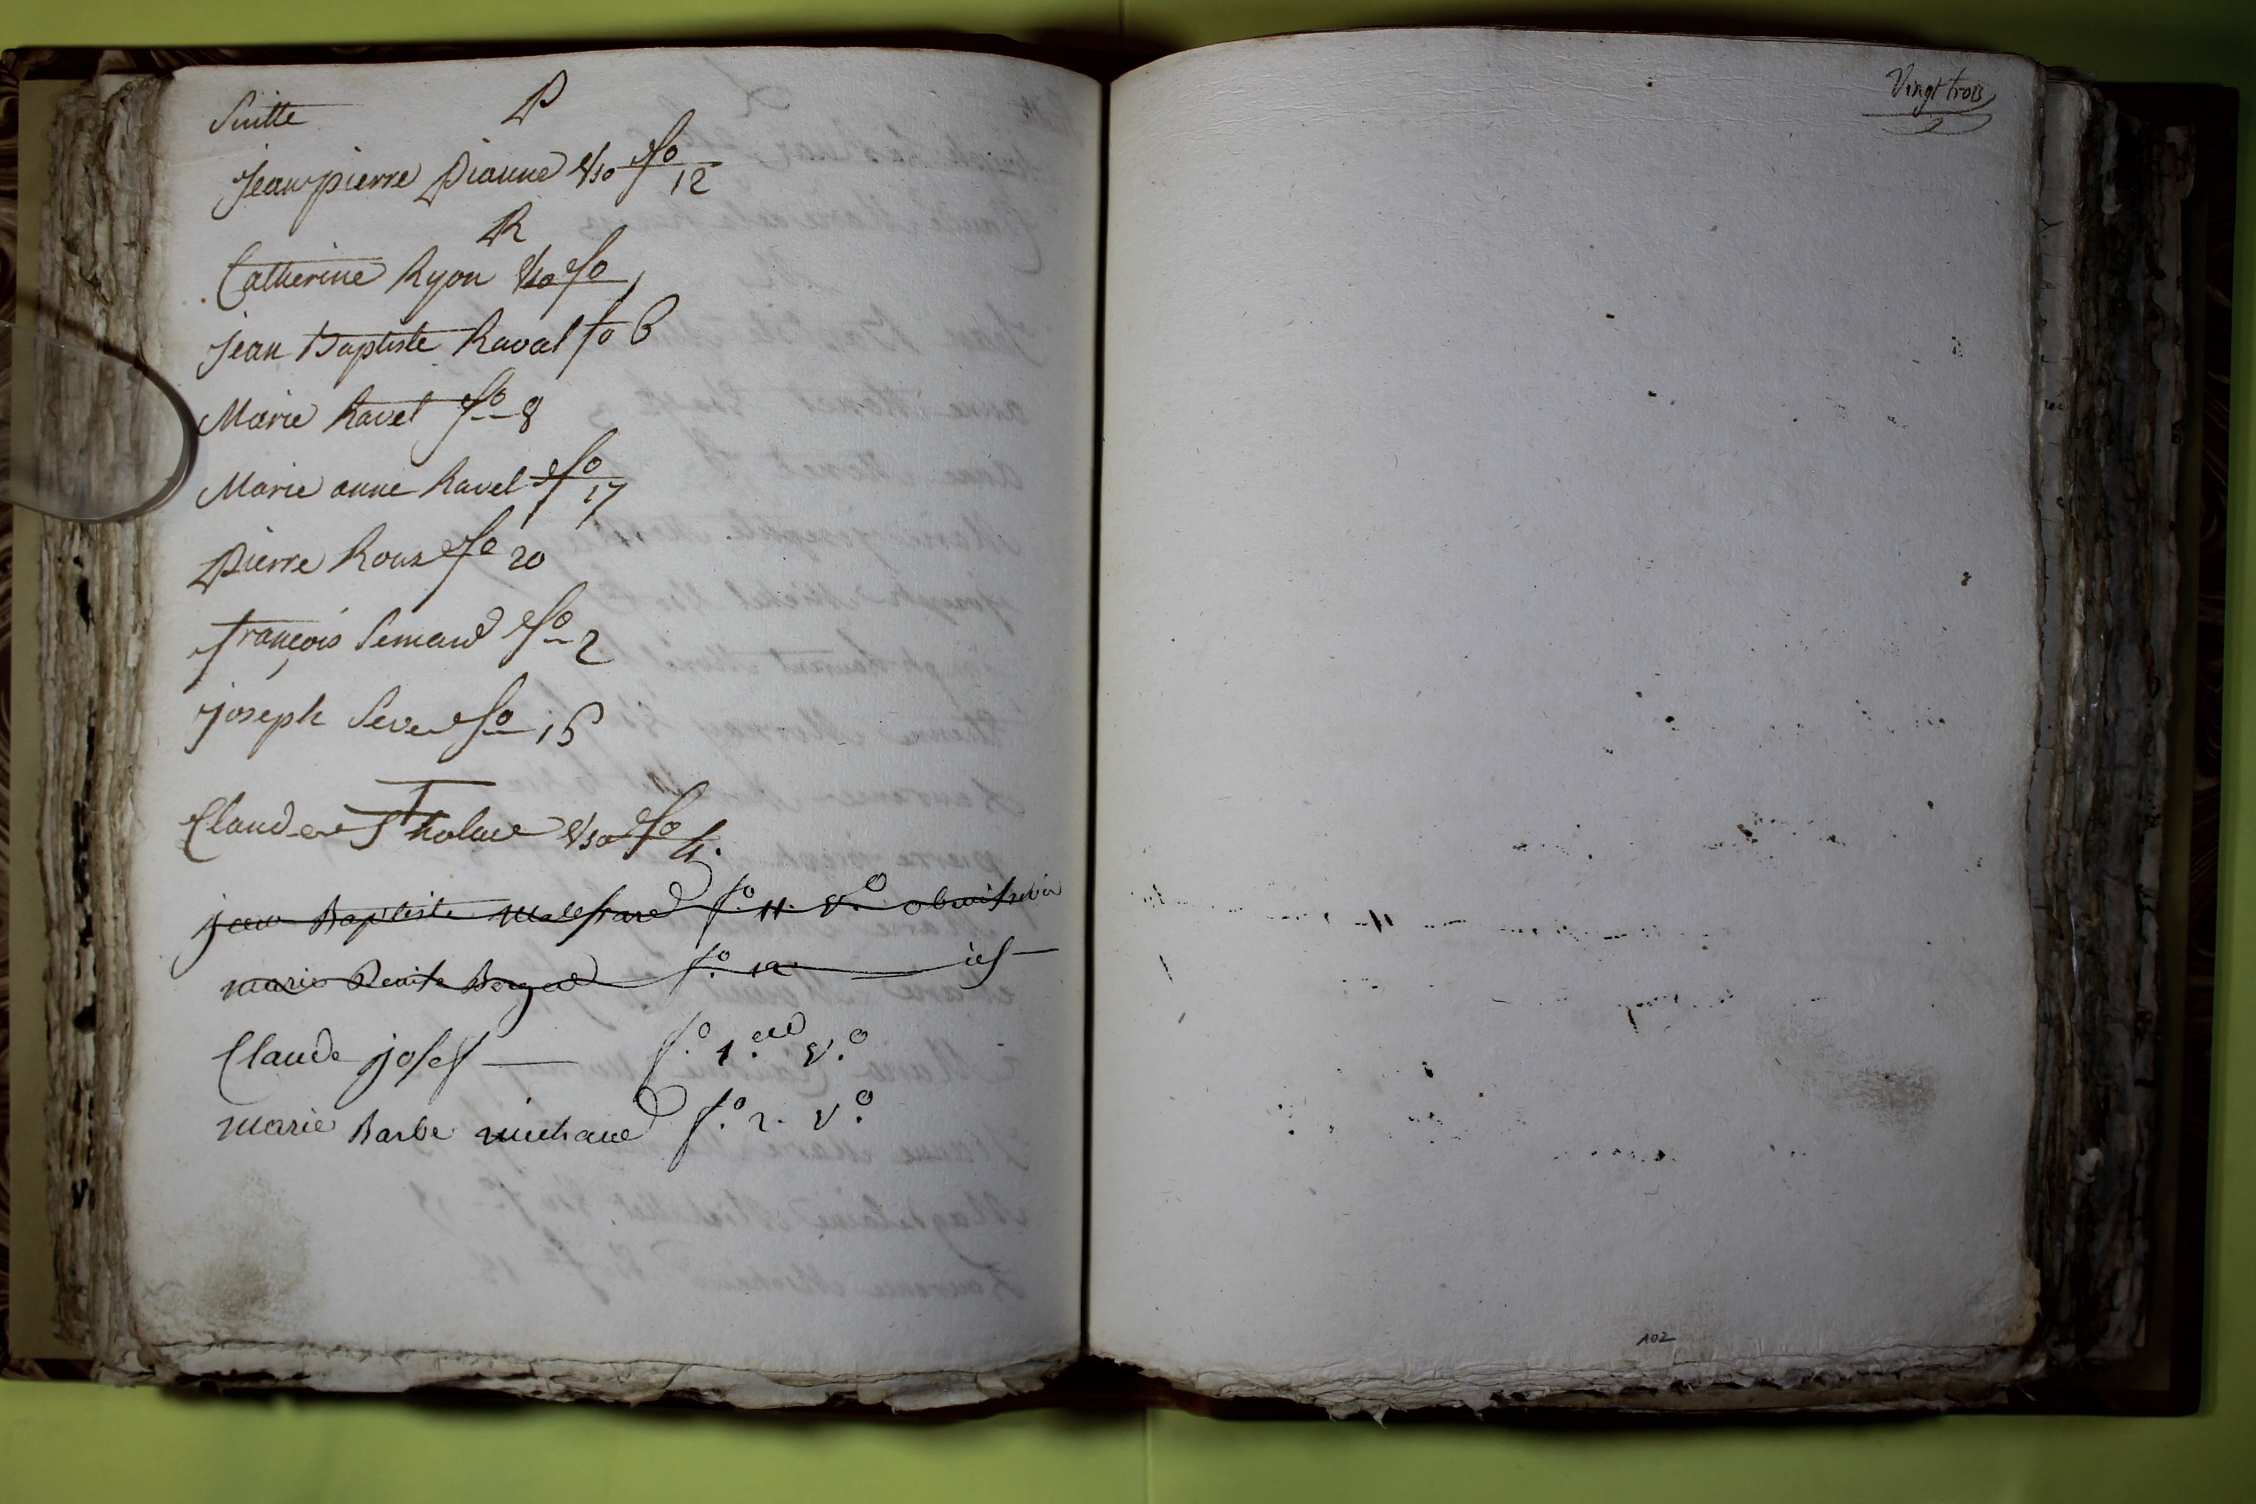 Suitte P
Jean pierre Pianne v/so fo 12
R
Catherine Ryon v/so fo 1
Jean Baptiste Raval fo 6
Marie Ravel fo 8
Marie anne Ravel fo 17
Pierre Roux fo 20
françois Semand fo 2
joseph Seve fo 16
T
Claude Tholace v/so fo 4.
jean Baptiste fo. 11. vo.
marie Benite fo. 12
Claude josef fo. 1.er vo.
marie Barbe michaud fo. 2. vo.
Vingt trois
102